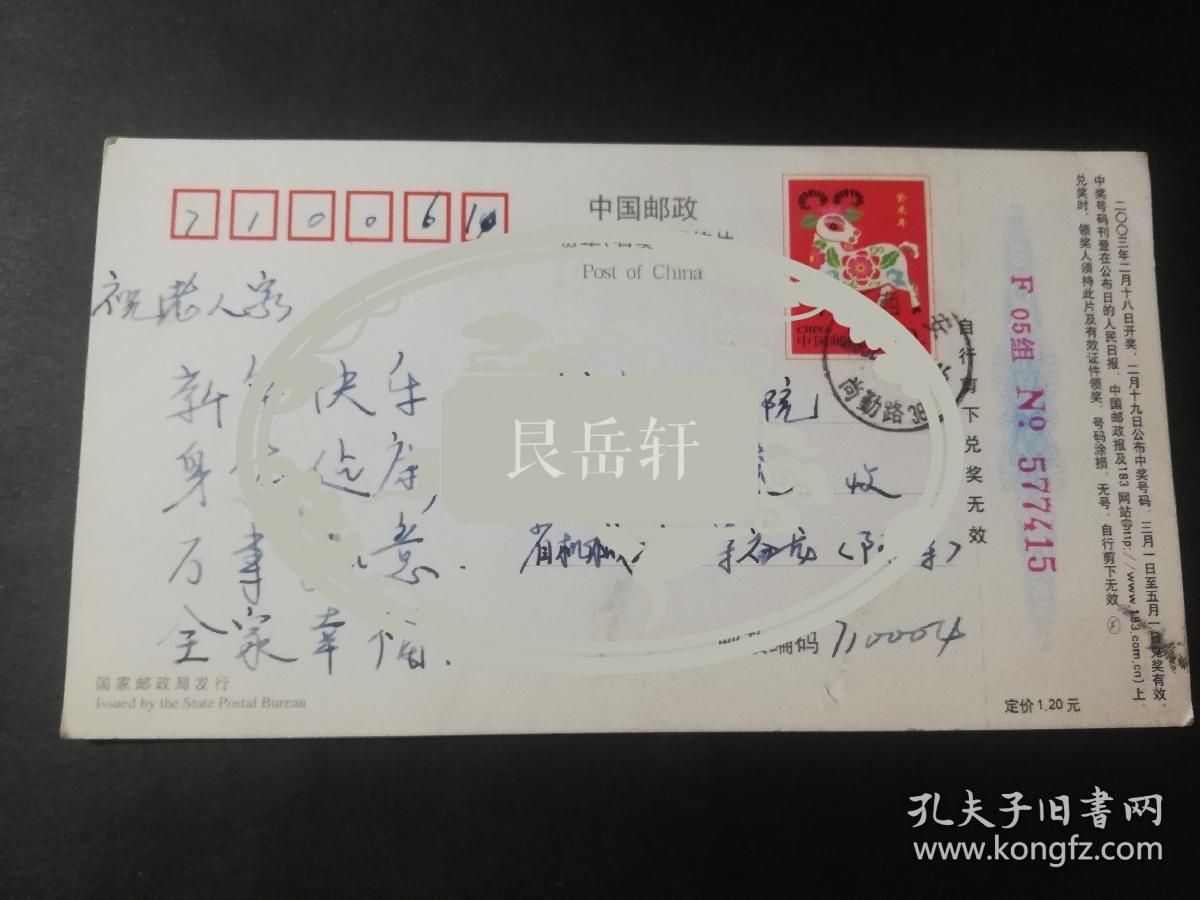 710061
中国邮政
Post of China
癸未年
CHINA
中国邮
尚勤路38
祝老人家
新年快乐
身体健康,
万事如意.
全家幸福.
院
收
省机械
邮政编码 710004
国家邮政局发行
Issued by the State Postal Bureau
自行剪下兑奖无效
F 05组 № 577415
二〇〇三年二月十八日开奖、二月十九日公布中奖号码、三月一日至五月一日兑奖有效,
中奖号码刊登在公布日的人民日报、中国邮政报及183网站(http://www.183.com.cn)上、
兑奖时,领奖人须持此片及有效证件领奖、号码涂损、无号、自行剪下无效
定价1.20元
艮岳轩
孔夫子旧书网
www.kongfz.com